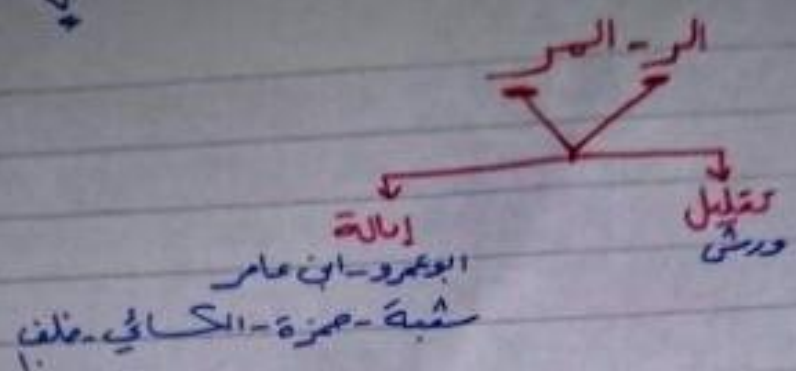 الر - المر
تقليل
ورش
إمالة
ابوعمرو - ابن عامر
شعبة - حمزة - الكسائي - خلف